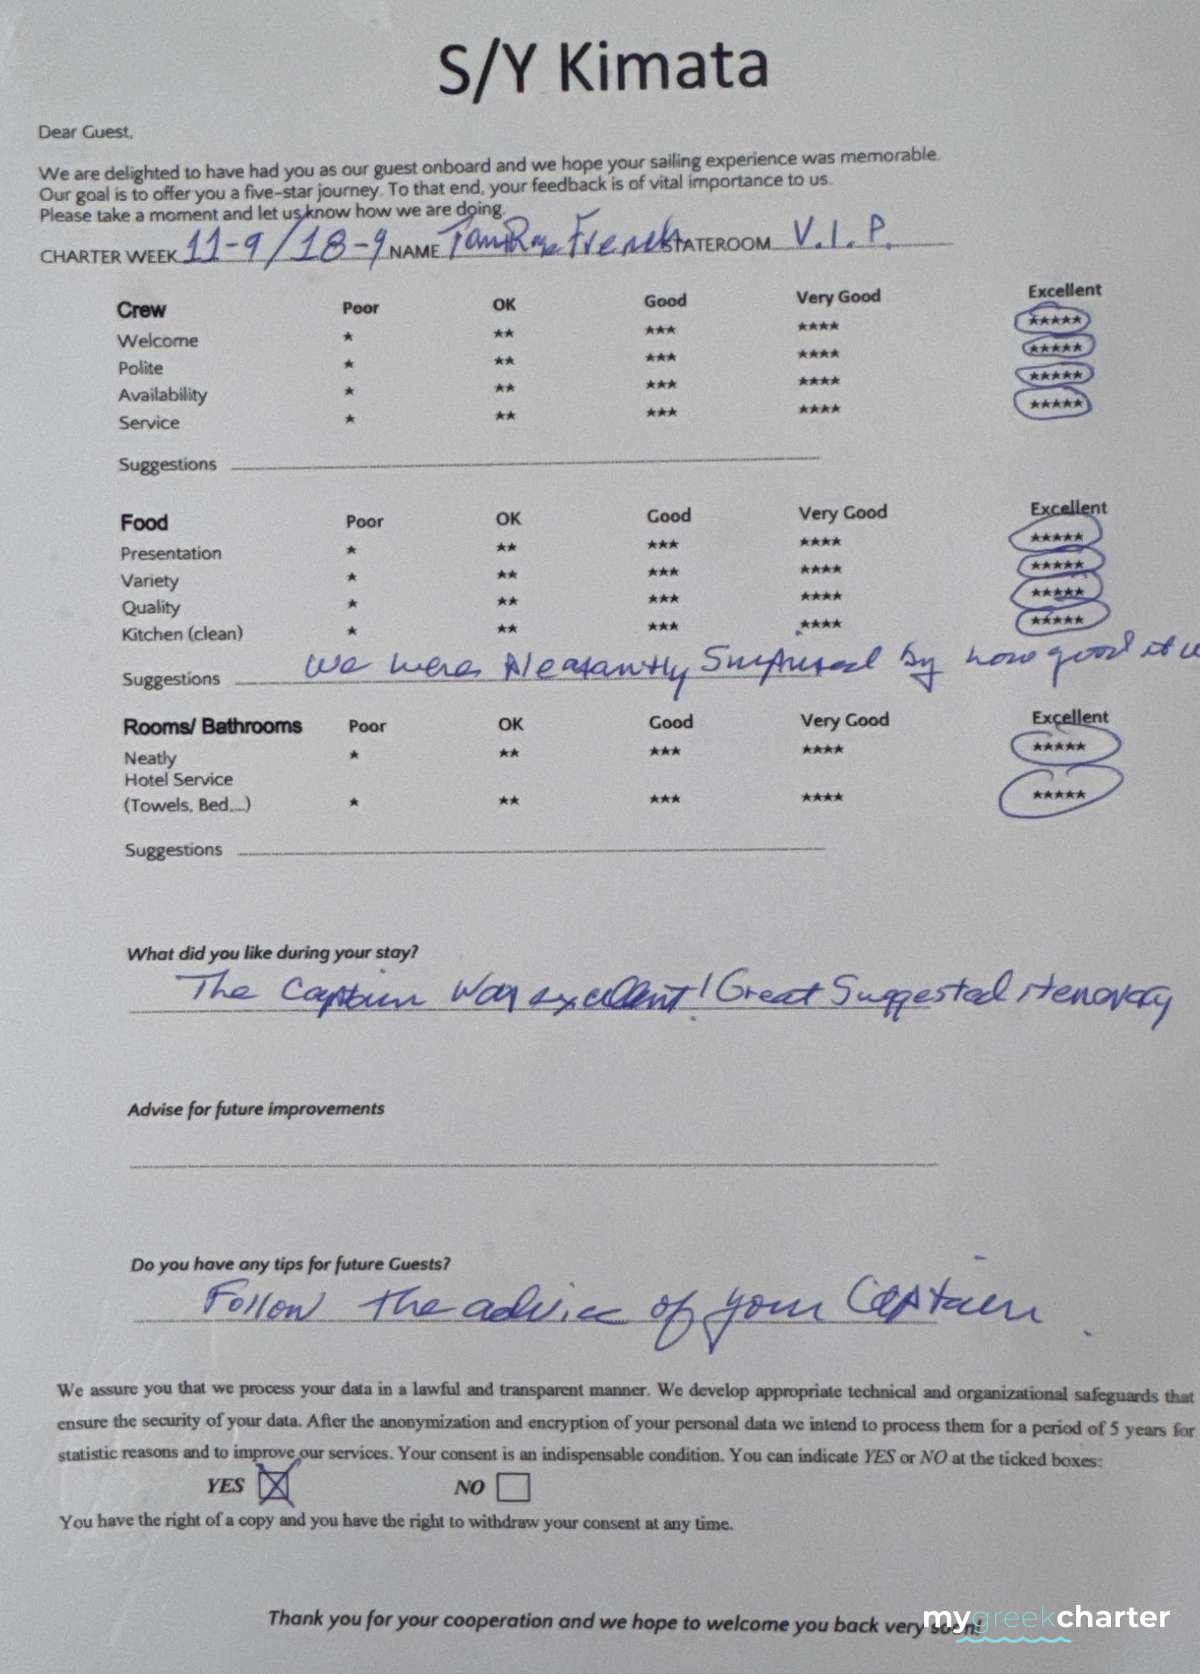 S/Y Kimata
Dear Guest,
We are delighted to have had you as our guest onboard and we hope your sailing experience was memorable.
Our goal is to offer you a five-star journey. To that end, your feedback is of vital importance to us.
Please take a moment and let us know how we are doing.
CHARTER WEEK 11-9/18-9 NAME French STATEROOM V.I.P.
Crew Poor OK Good Very Good Excellent
Welcome ★ ★★ ★★★ ★★★★ ★★★★★
Polite ★ ★★ ★★★ ★★★★ ★★★★★
Availability ★ ★★ ★★★ ★★★★ ★★★★★
Service ★ ★★ ★★★ ★★★★ ★★★★★
Suggestions
Food Poor OK Good Very Good Excellent
Presentation ★ ★★ ★★★ ★★★★ ★★★★★
Variety ★ ★★ ★★★ ★★★★ ★★★★★
Quality ★ ★★ ★★★ ★★★★ ★★★★★
Kitchen (clean) ★ ★★ ★★★ ★★★★ ★★★★★
Suggestions We were pleasantly surprised by how good it
Rooms/ Bathrooms Poor OK Good Very Good Excellent
Neatly ★ ★★ ★★★ ★★★★ ★★★★★
Hotel Service
(Towels, Bed,...) ★ ★★ ★★★ ★★★★ ★★★★★
Suggestions
What did you like during your stay?
The Captain was excellent! Great Suggested
Advise for future improvements
Do you have any tips for future Guests?
Follow the advice of your Captain.
We assure you that we process your data in a lawful and transparent manner. We develop appropriate technical and organizational safeguards that
ensure the security of your data. After the anonymization and encryption of your personal data we intend to process them for a period of 5 years for
statistic reasons and to improve our services. Your consent is an indispensable condition. You can indicate YES or NO at the ticked boxes:
YES NO
You have the right of a copy and you have the right to withdraw your consent at any time.
Thank you for your cooperation and we hope to welcome you back very soon!
mygreekcharter